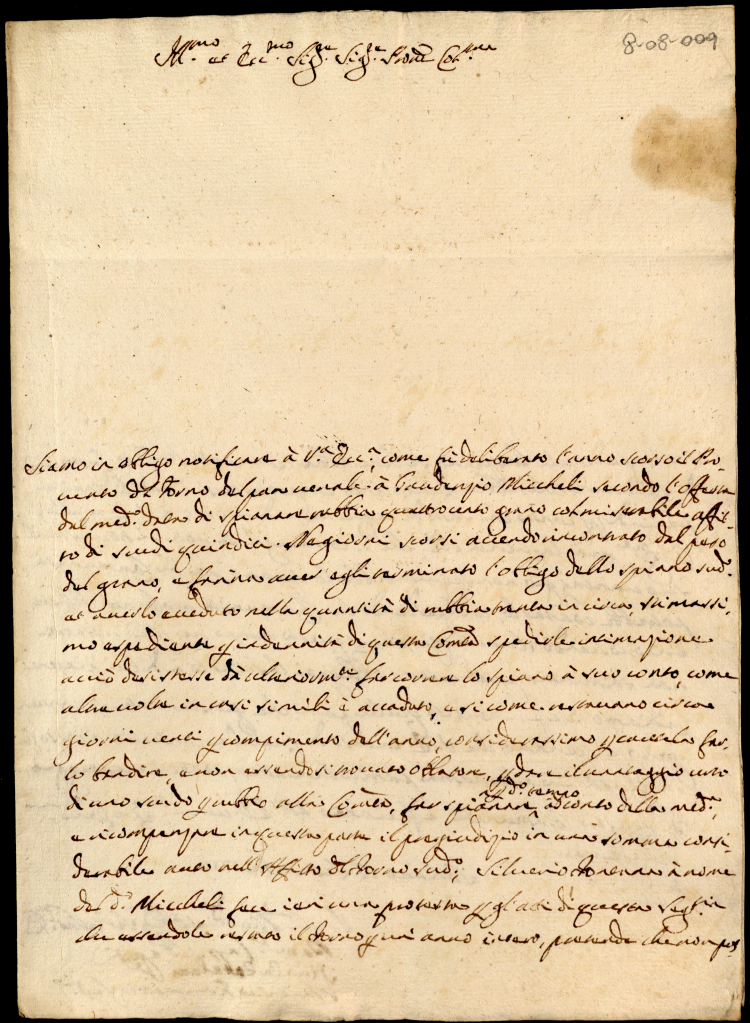 8-08-009
Ill.mo et Ecc.mo Sig.re Sig.re Prone Col.mo
Siamo in obligo notificare à V.a Ecc.a, come fù deliberato l'anno scorso il Pro-
vento del forno del pan venale à Gaudenzio Miccheli secondo l'offerta
del med.o data di spianare rubbia quattrocento grano col miserabile affit-
to di scudi quindici. Ne giorni scorsi avendo incontrato dal peso
del grano, e farina aver egli terminato l'obligo dello spiano sud.o
et averlo ecceduto nella quantità di rubbia trenta in circa, stimassi-
mo espediente p indennità di questa Com.tà spedirle intimazione
acciò desistesse dà ulteriorm.te far correre lo spiano à suo conto, come
altre volte in casi simili è accaduto, e si come restavano circa
giorni venti p compimento dell'anno, considerassimo p cautela far-
lo bandire, e non essendosi trovato oblatore, p dare il vantaggio
di uno scudo p rubbio alla Com.tà, far spianare p d.o tempo à conto della med.a
e ricompensare in questa parte il pregiudizio in una somma consi-
derabile auto nell'Affitto del forno sud.o; Silverio à nome
del d.o Miccheli fece ieri una protesta p gl'atti di questa Seg.ria
che essendole restato il forno p un anno intero, pretende che non pos